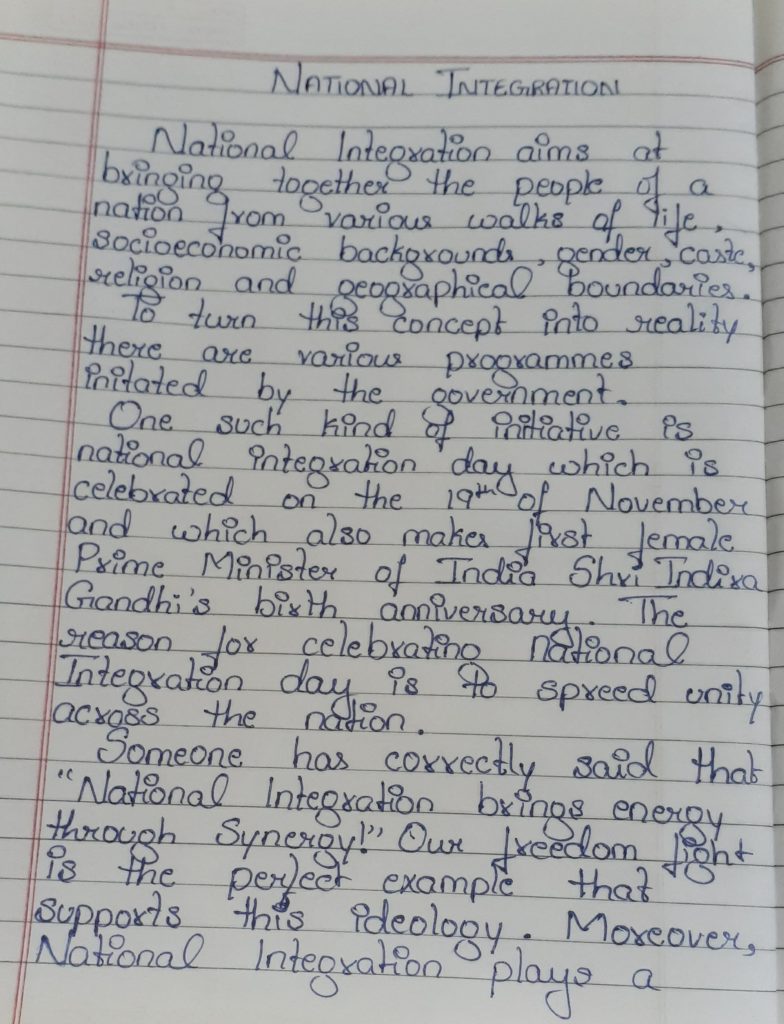 NATIONAL INTEGRATION
National Integration aims at
bringing together the people of a
nation from various walks of life,
socioeconomic backgrounds, gender, caste,
religion and geographical boundaries.
To turn this concept into reality
there are various programmes
initated by the government.
One such kind of initiative is
national integration day which is
celebrated on the 19th of November
and which also makes first female
Prime Minister of India Shri Indira
Gandhi's birth anniversary. The
reason for celebrating national
Integration day is to spreed unity
across the nation.
Someone has correctly said that
"National Integration brings energy
through Synergy!" Our freedom fight
is the perfect example that
supports this ideology. Moreover,
National Integration plays a